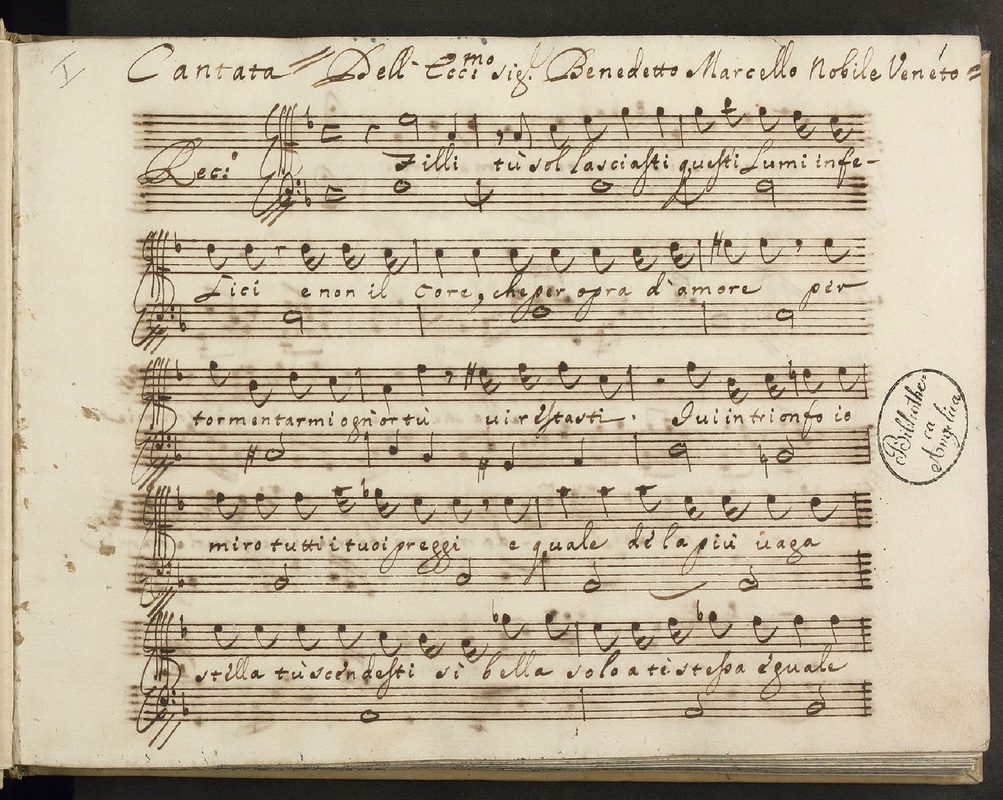 I
Cantata Dell' Ecc.mo Sig.r Benedetto Marcello Nobile Veneto
Rec:o
Filli tù sol lasciasti questi Lumi infe-
Lici e non il Core, che per opra d'amore per
tormentarmi ogn'or tù vi restasti. Qui in trionfo io
miro tutti i tuoi preggi e quale de la più vaga
stella tù scendesti sì bella solo a te stessa eguale
Bibliothe:
ca
Angelica